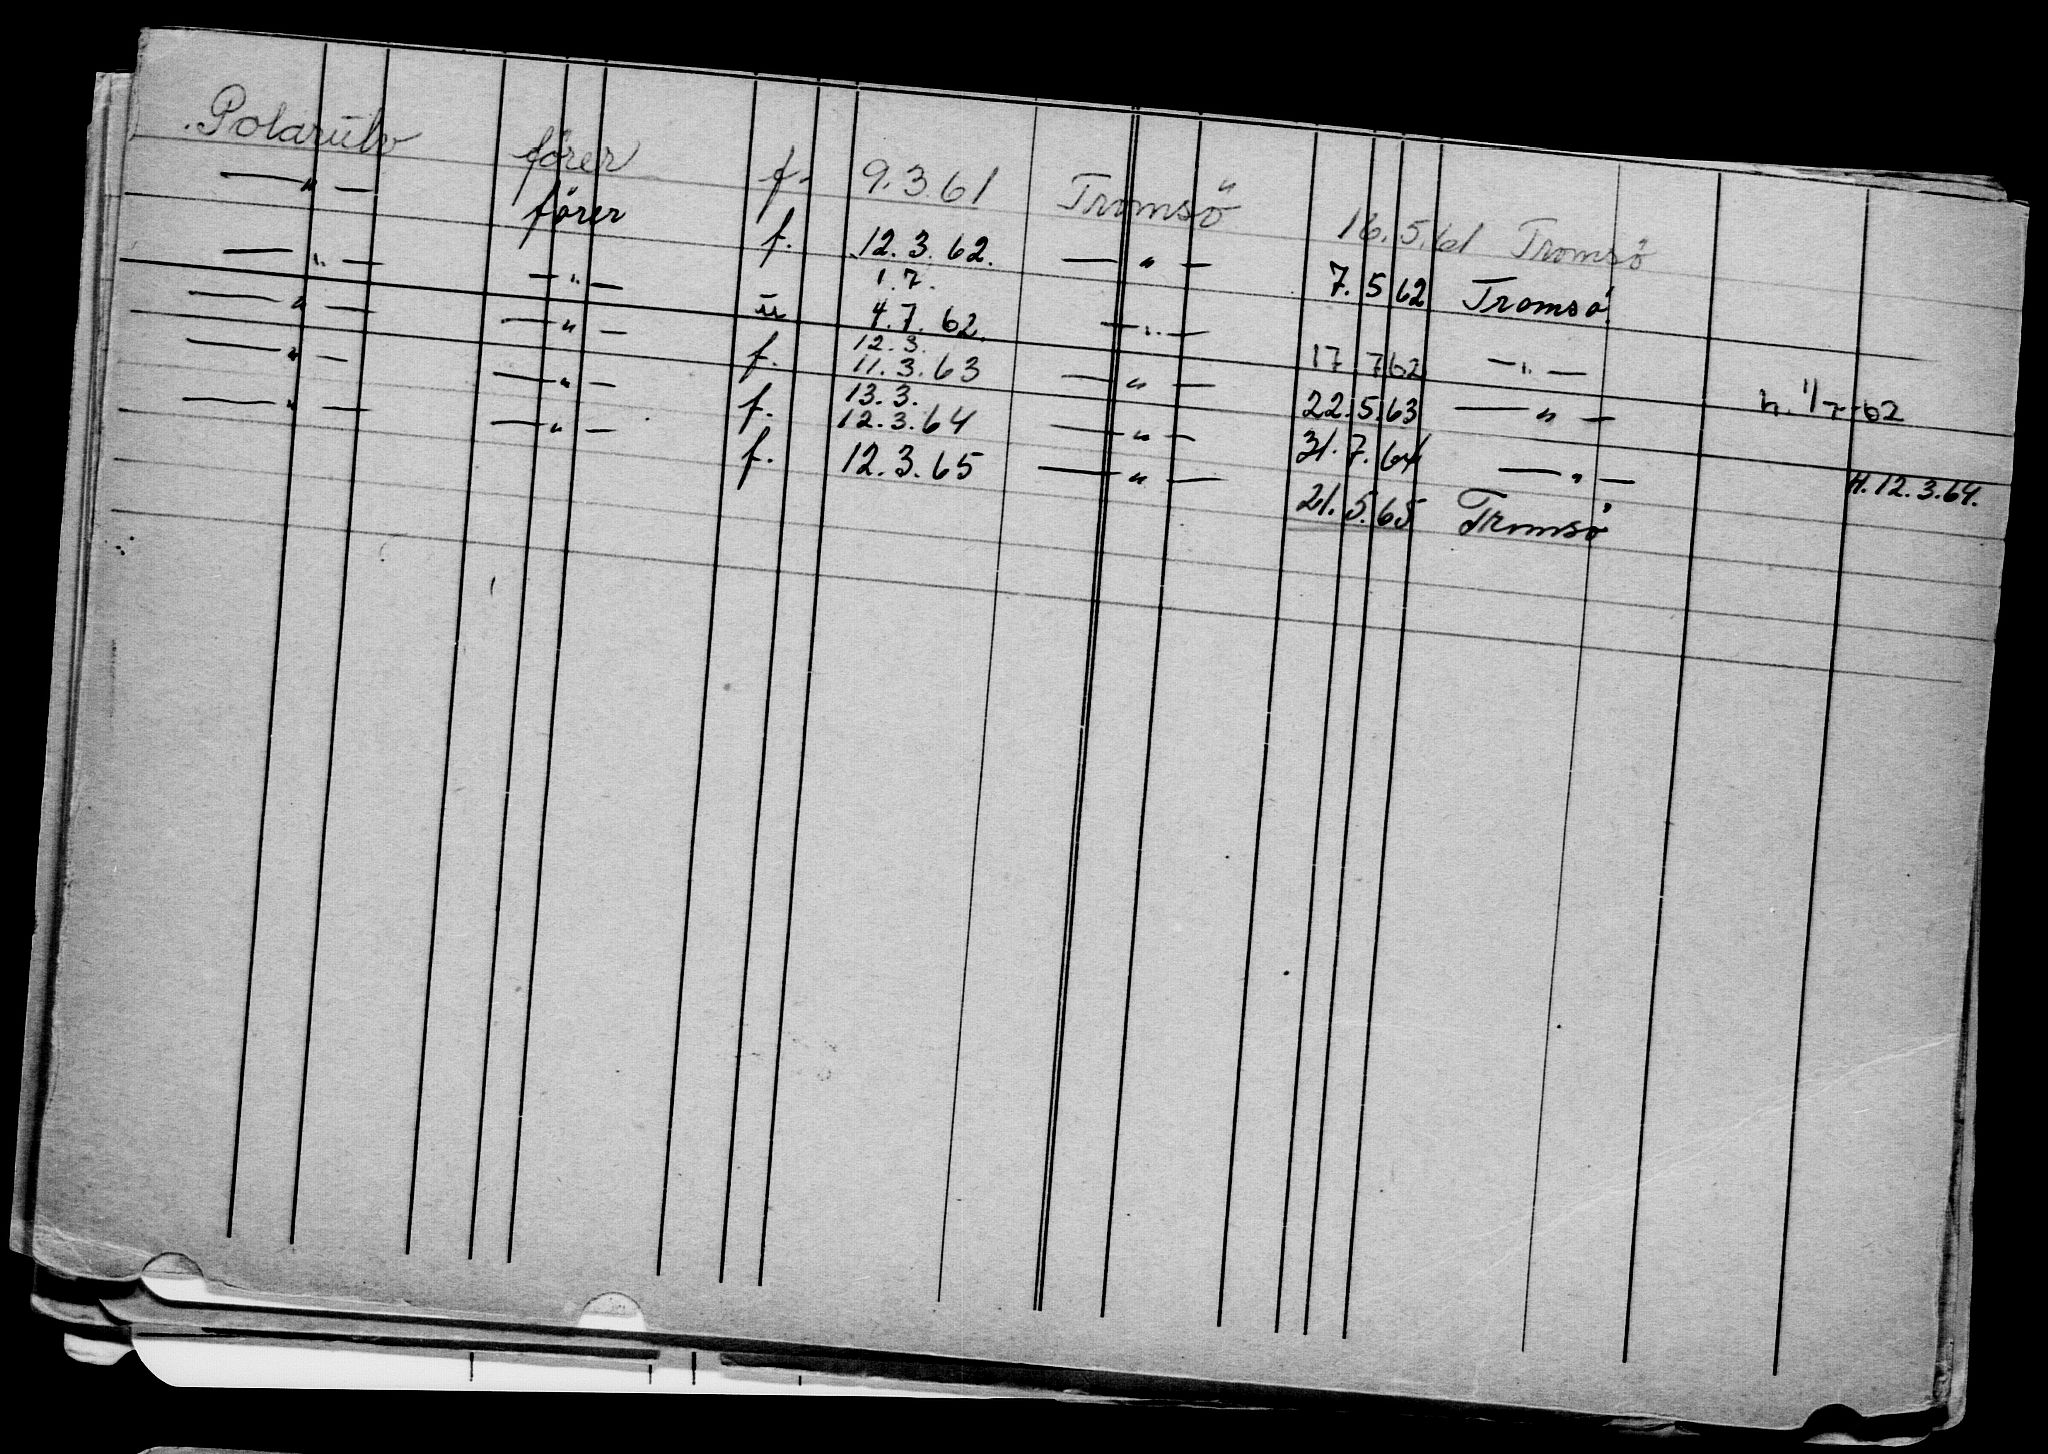 Polarulv förer f. 9.3.61 Tromsö 16.5.61 Tromsö
—"— förer f. 12.3.62. —"— 7.5.62 Tromsö
1.7.
—"— —"— u 4.7.62. —"— 17 7 62 —"— h. 1/7-62
12.3.
—"— —"— f. 11.3.63 —"— 22.5.63 —"—
13.3.
—"— —"— f. 12.3.64 —"— 31.7.64 —"— H.12.3.64.
—"— —"— f. 12.3.65 —"— 21.5.65 Tromsö